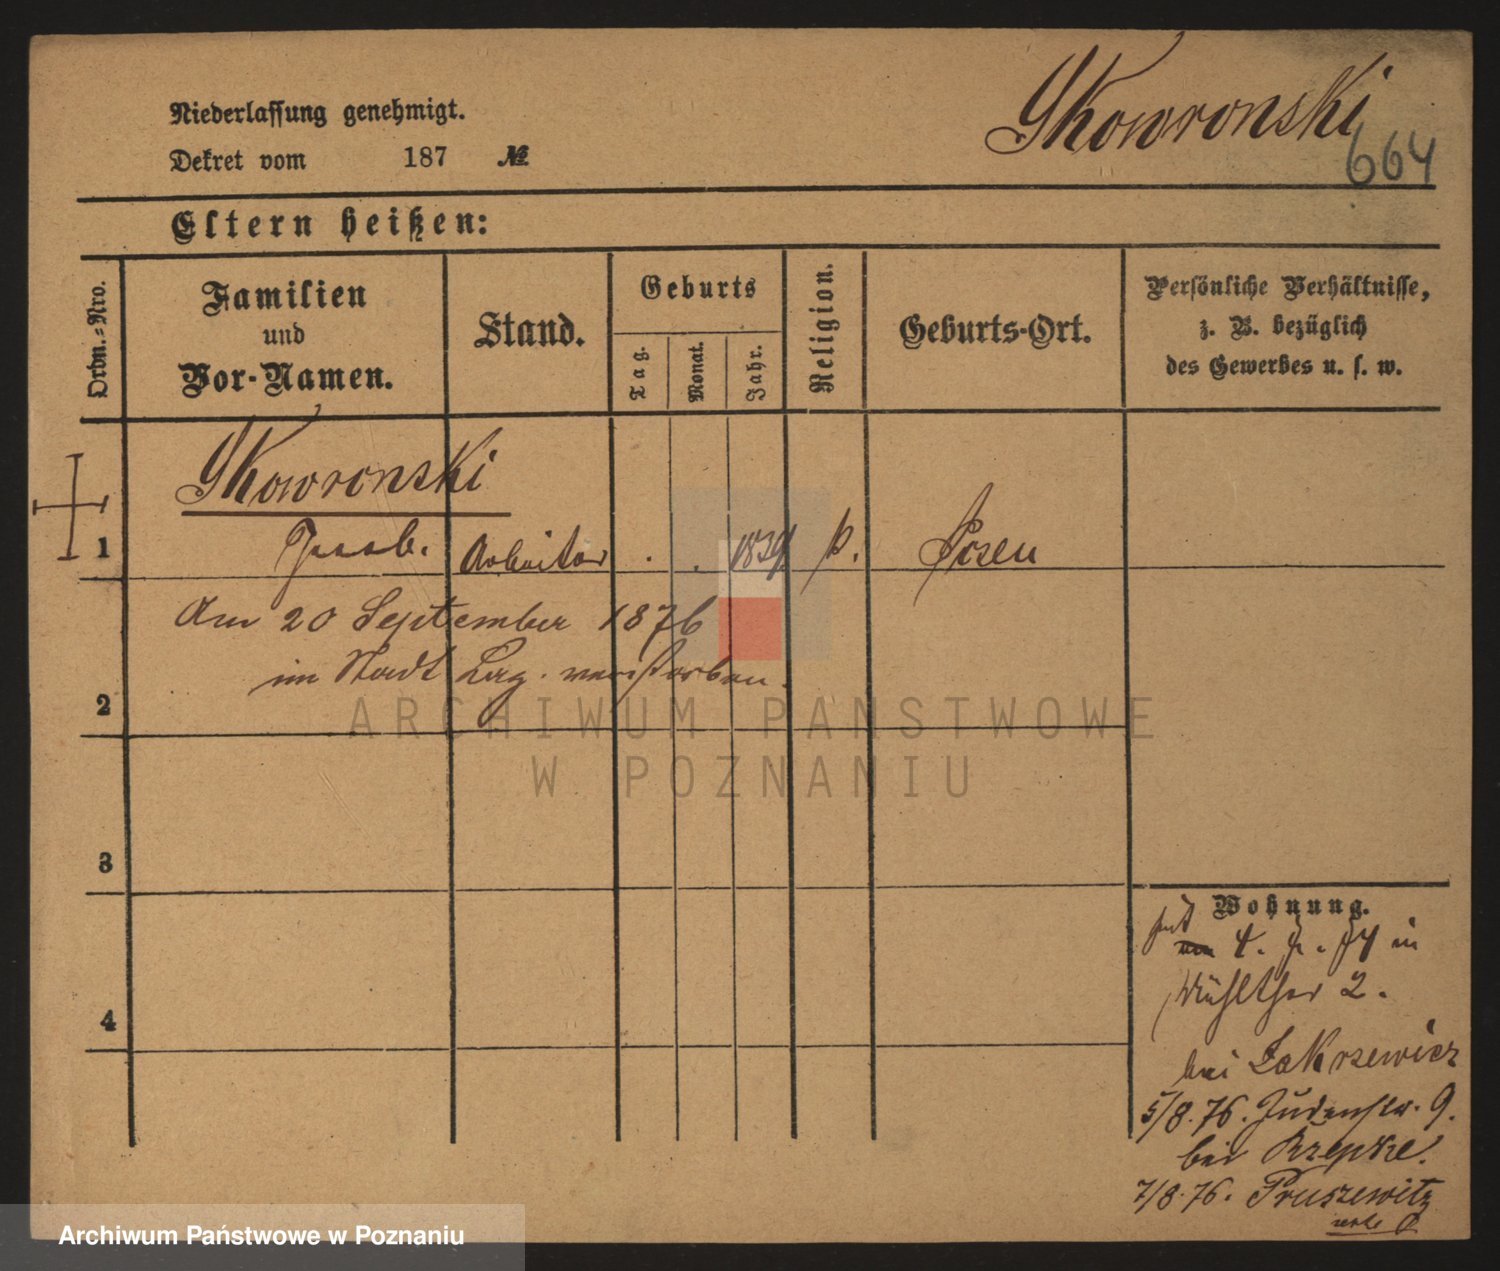 Skowronski
664
Niederlassung genehmigt.
Dekret vom 187 №
Eltern heißen:
Ordn.-Nro.
Familien
und
Vor-Namen.
Stand.
Geburts
Tag.
Monat.
Jahr.
Religion.
Geburts-Ort.
Persönliche Verhältnisse,
z. B. bezüglich
des Gewerbes u. s. w.
Skowronski
1 Jacob. Arbeiter . . 1839 k. Posen
Am 20 September 1876
im Stadt Laz. verstorben.
2
ARCHIWUM PAŃSTWOWE
W POZNANIU
3
Wohnung.
4. 74 in
Mühlthor 2.
4
bei Zakrzewicz
5/8.76. Judenstr. 9.
bei Rzepke.
7/8.76. Pruszewitz
Archiwum Państwowe w Poznaniu